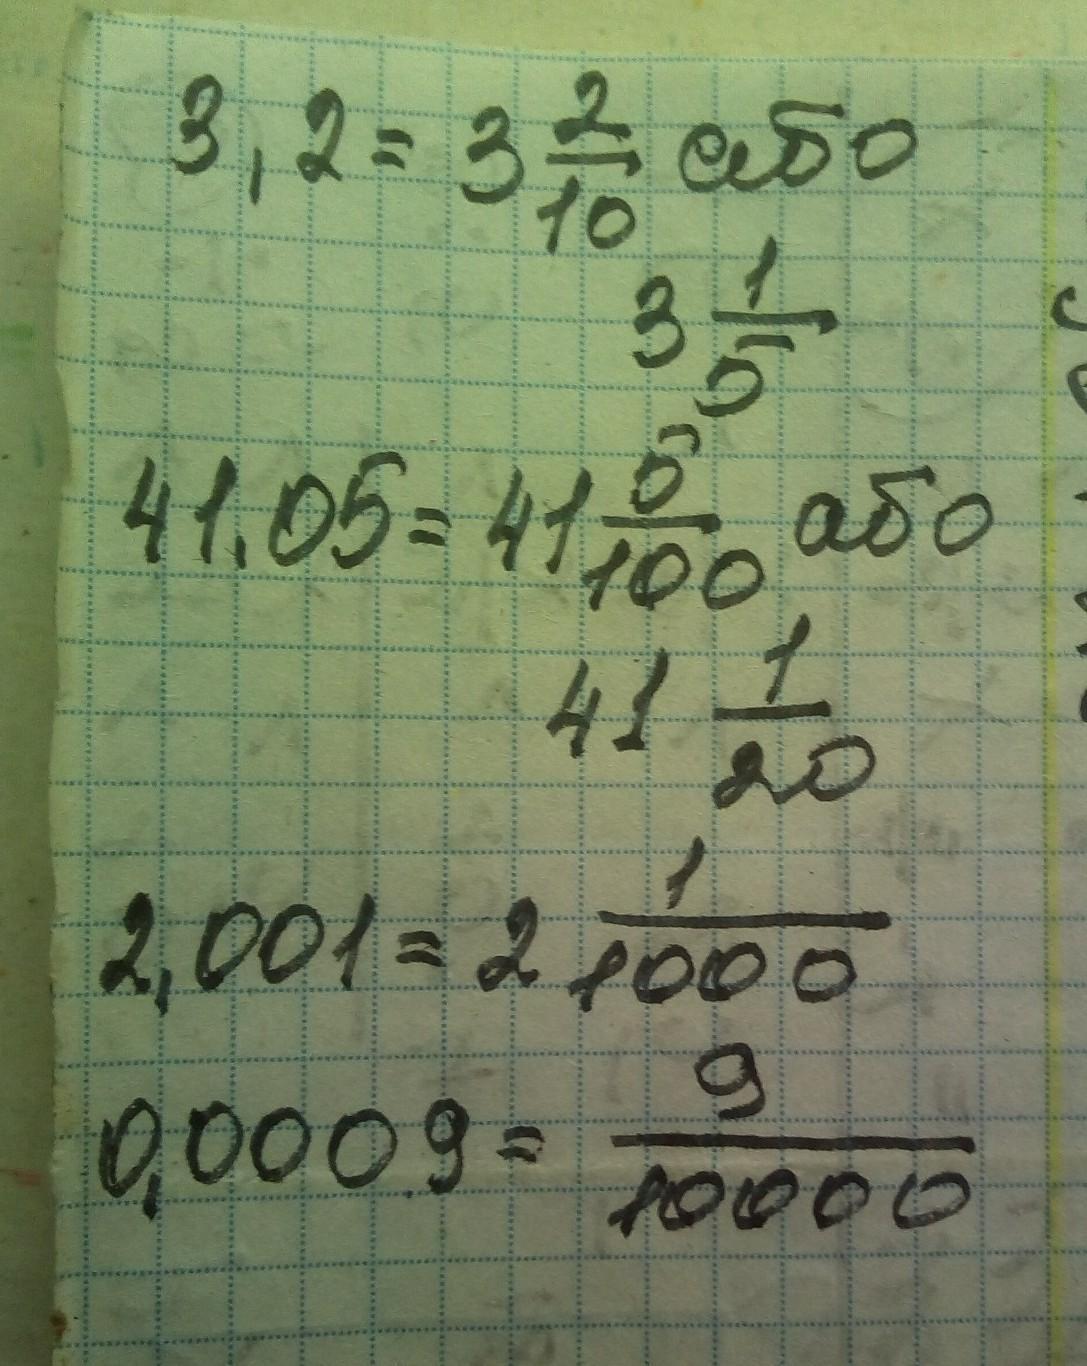 3,2 = 3 2/10 або
3 1/5
41,05 = 41 5/100 або
41 1/20
2,001 = 2 1/1000
0,0009 = 9/10000